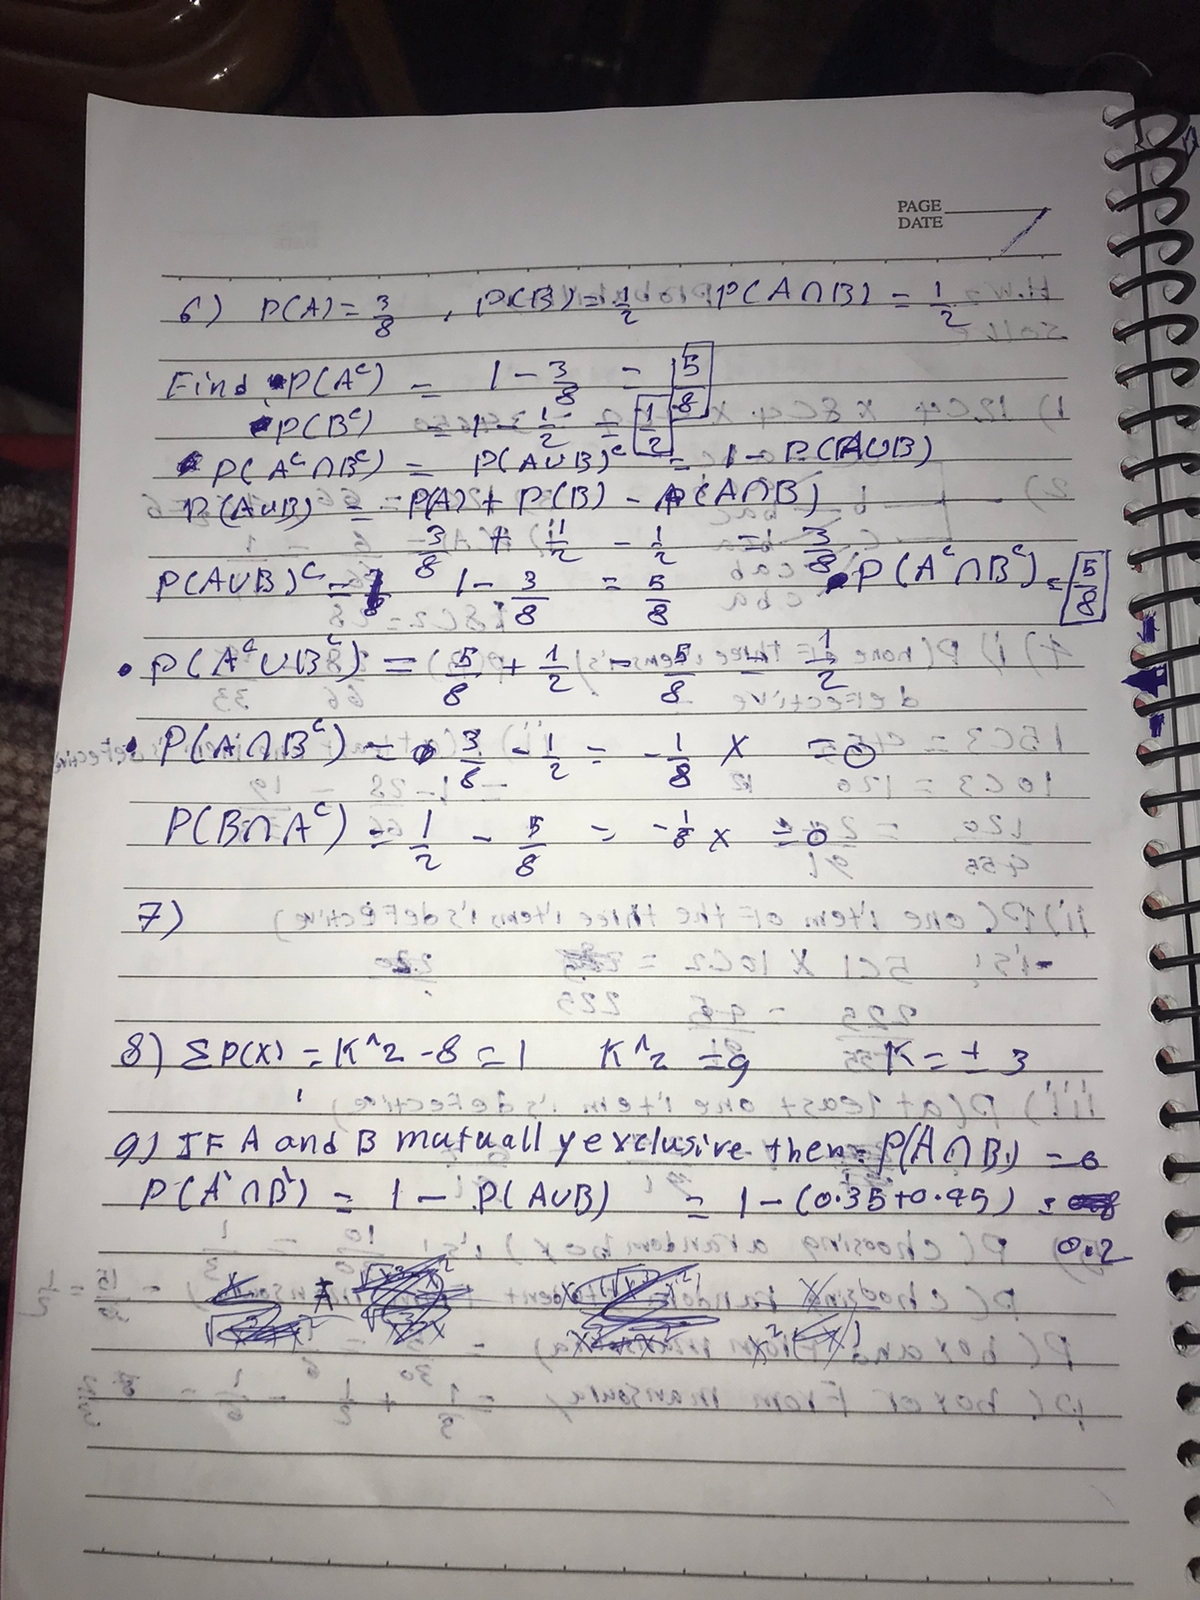 PAGE
DATE
6) P(A) = 3/8 , P(B) = 1/2 P(A∩B) = 1/2
Find P(A^c) = 1 - 3/8 = 5/8
P(B^c) = 1 - 1/2 = 1/2
P(A^c∩B^c) = P(A∪B)^c = 1 - P(A∪B)
P(A∪B) = P(A) + P(B) - P(A∩B)
3/8 + 1/2 - 1/2 = 3/8
P(A∪B)^c = 1 - 3/8 = 5/8 • P(A^c∩B^c) = 5/8
• P(A^c∪B^c) = 5/8 + 1/2 - 5/8 = 1/2
• P(A∩B^c) = 3/8 - 1/2 = -1/8 X = 0
P(B∩A^c) = 1/2 - 5/8 = -1/8 X = 0
7)
8) ΣP(X) = K^2 - 8 = 1 K^2 = 9 K = ± 3
9) IF A and B mutually exclusive then = P(A∩B) = 0
P(A'∩B') = 1 - P(A∪B) = 1 - (0.35+0.45) =
0.2